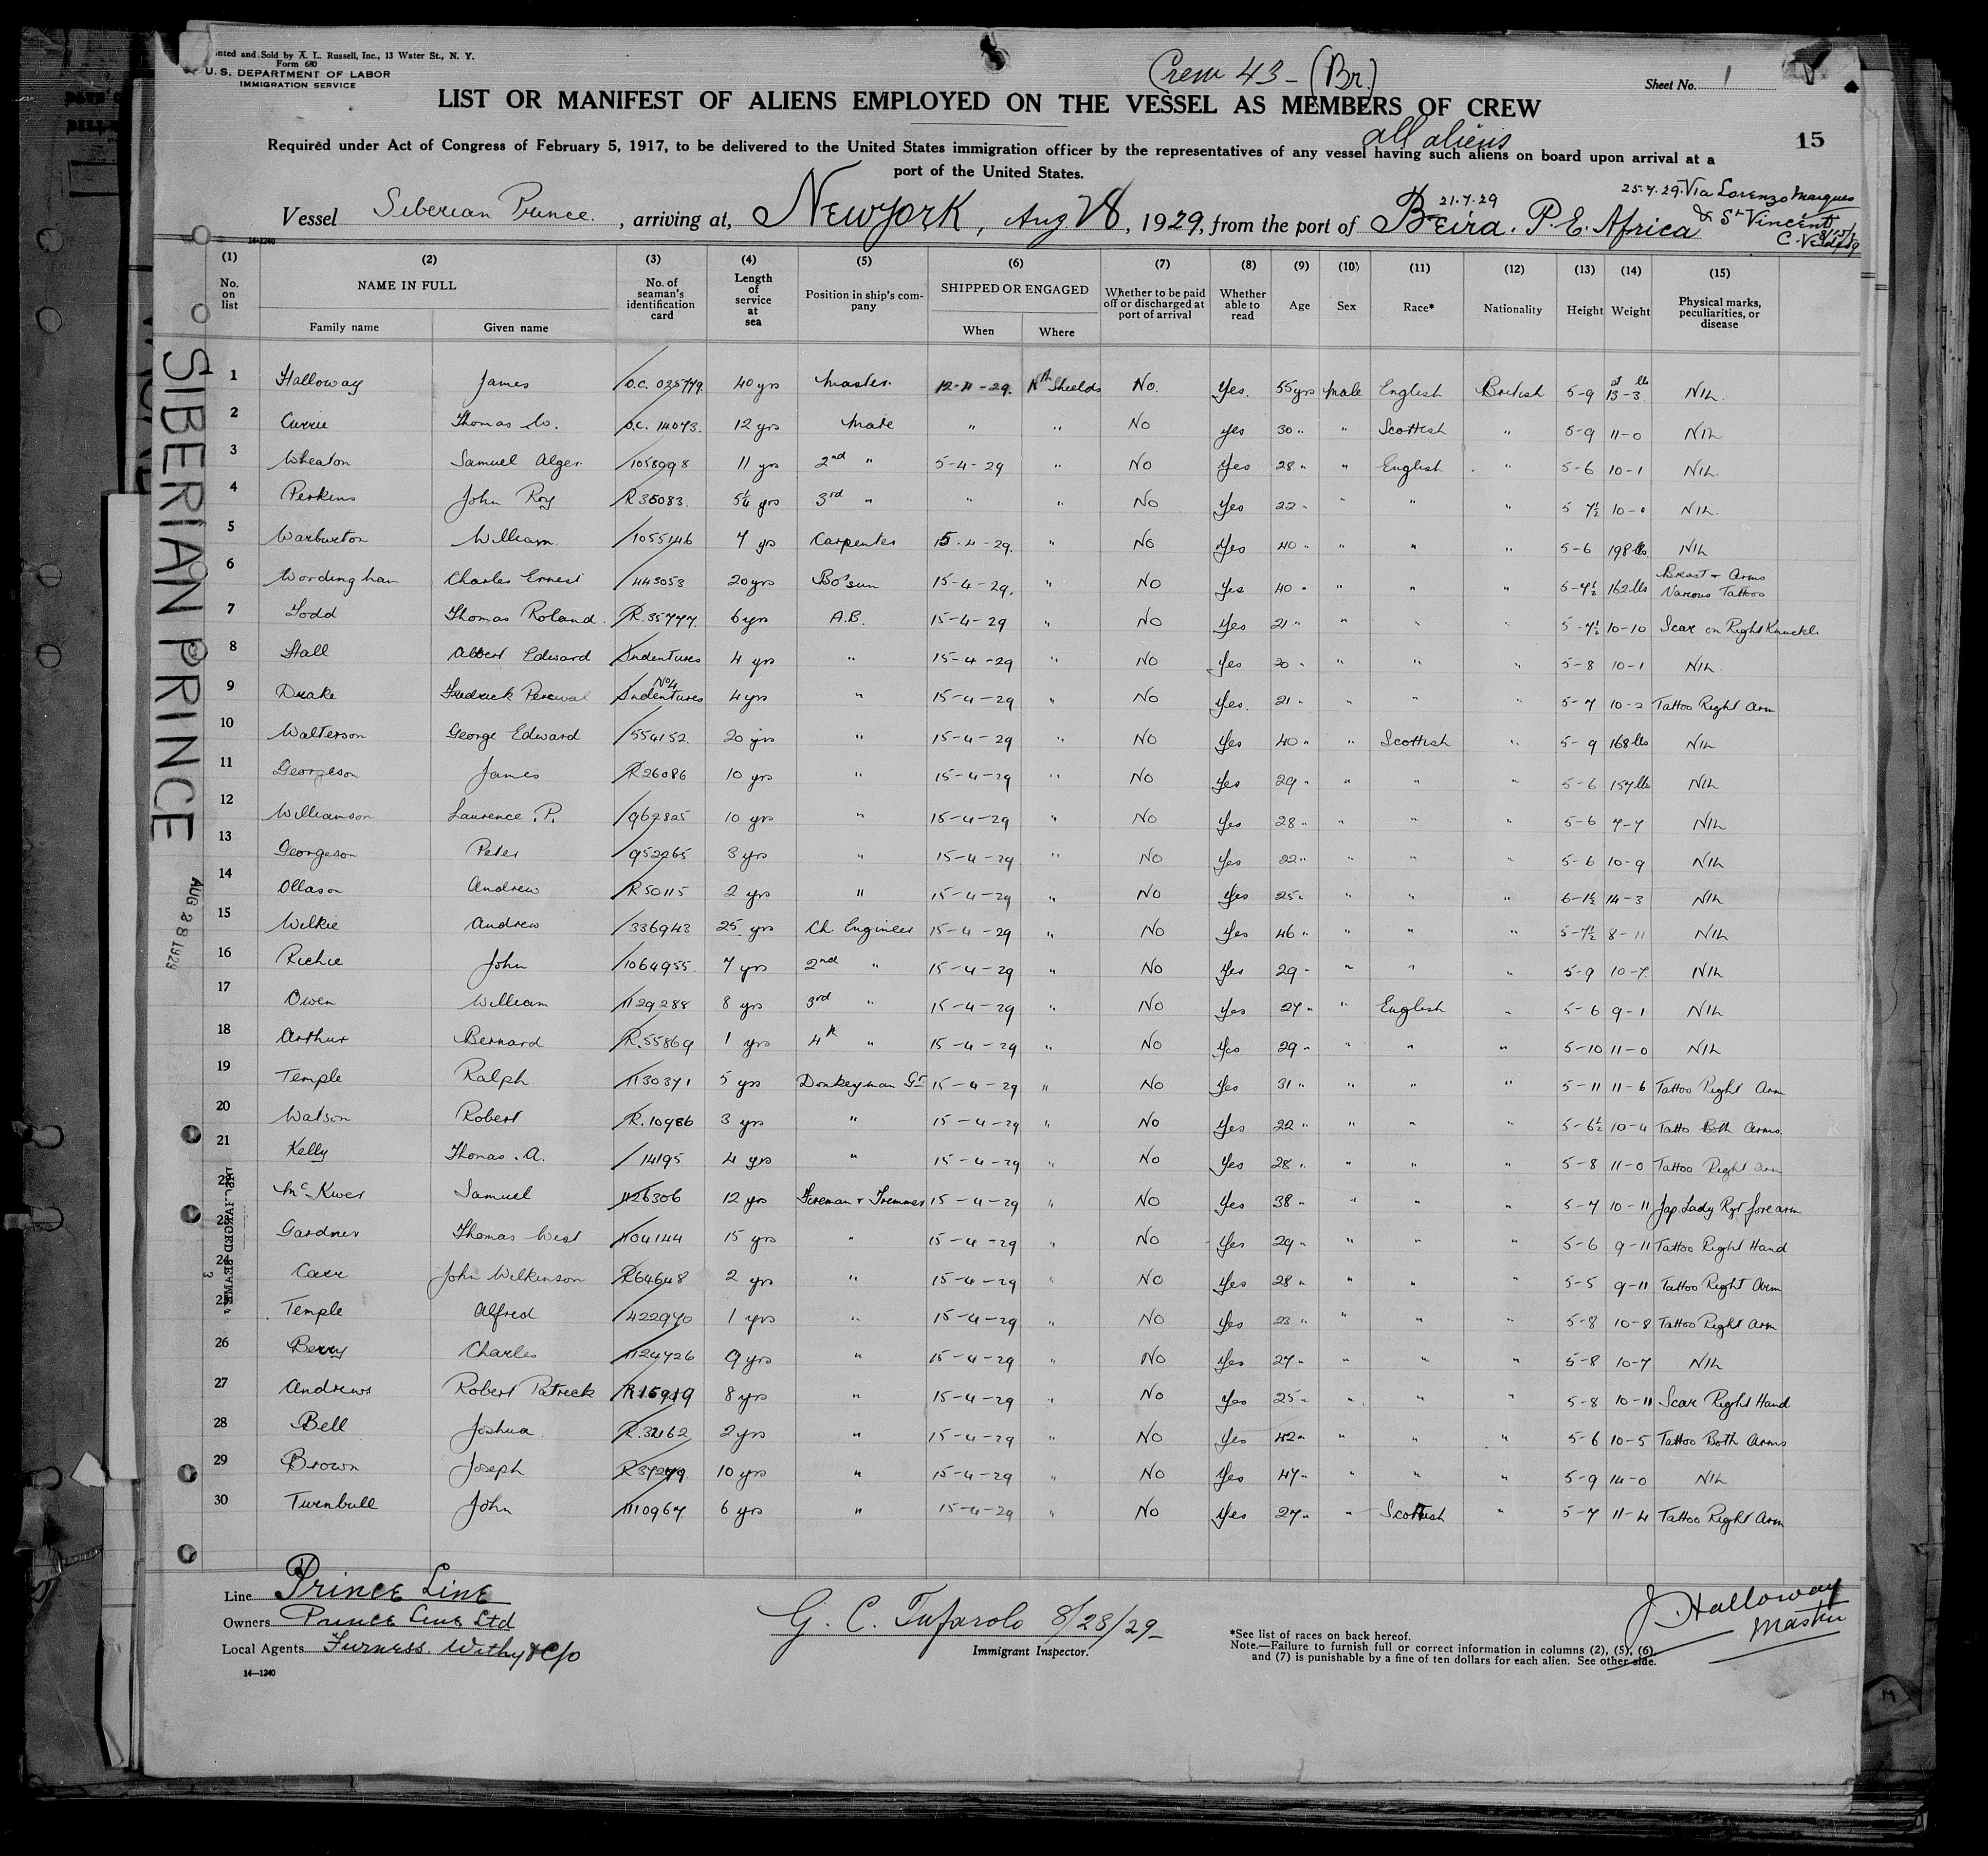 Printed and Sold by A. L. Russell, Inc., 13 Water St., N. Y.
Form 680
U. S. DEPARTMENT OF LABOR
IMMIGRATION SERVICE
Crew 43 - (Br.)
Sheet No. 1
LIST OR MANIFEST OF ALIENS EMPLOYED ON THE VESSEL AS MEMBERS OF CREW
all aliens
15
Required under Act of Congress of February 5, 1917, to be delivered to the United States immigration officer by the representatives of any vessel having such aliens on board upon arrival at a
port of the United States.
25.7.29. Via Lorenzo Marques
21.7.29
& St Vincent
C. Verde
Vessel Siberian Prince, arriving at, New York, Aug 28, 1929, from the port of Beira. P. E. Africa
14-1240
(1) (2) (3) (4) (5) (6) (7) (8) (9) (10) (11) (12) (13) (14) (15)
No. on list NAME IN FULL Family name Given name No. of seaman's identification card Length of service at sea Position in ship's company SHIPPED OR ENGAGED When Where Whether to be paid off or discharged at port of arrival Whether able to read Age Sex Race* Nationality Height Weight Physical marks, peculiarities, or disease
1 Halloway James O.C. 025779. 40 yrs Master. 12-4-29. Nth Shields No. Yes. 55 yrs Male English British 5-9 st lbs 13-3. Nil.
2 Currie Thomas O.C. 14073. 12 yrs Mate " " No Yes 30 " " Scottish " 5-9 11-0 Nil
3 Wheaton Samuel Alger. 1058098 11 yrs 2nd " 5-4-29 " No Yes 28 " " English " 5-6 10-1 Nil.
4 Perkins John Roy R35083. 5¼ yrs 3rd " " " No Yes 22 " " " " 5 7½ 10-0 Nil.
5 Warburton William 1055146 7 yrs Carpenter 15.4-29. " No Yes 40 " " " " 5-6 198 lbs. Nil
6 Wordingham Charles Ernest 443053 20 yrs Bo'sun 15-4-29. " No Yes 40 " " " " 5-7½ 162 lbs Breast + Arms Various Tattoos
7 Todd Thomas Roland. R.35777. 6 yrs A.B. 15-4-29 " No Yes 21 " " " " 5-7½ 10-10 Scar on Right Knuckle
8 Hall Albert Edward Indentures 4 yrs " 15-4-29 " No Yes 20 " " " " 5-8 10-1 Nil.
9 Drake Fredrick Percival No 4 Indentures 4 yrs " 15-4-29 " No Yes. 21 " " " " 5-7 10-2 Tattoo Right Arm
10 Walterson George Edward 554152. 20 yrs " 15-4-29 " No Yes 40 " " Scottish " 5-9 168 lbs Nil
11 Georgeson James R26086 10 yrs " 15-4-29 " No Yes 29 " " " " 5-6 157 lbs Nil
12 Williamson Laurence. P. 962825 10 yrs " 15-4-29 " No Yes 28 " " " " 5-6 7-7 Nil
13 Georgeson Peter 952265 3 yrs " 15-4-29 " No Yes 22 " " " " 5-6 10-9 Nil
14 Ollason Andrew R50115 2 yrs " 15-4-29 " No Yes 25 " " " " 6-1½ 14-3 Nil
15 Wilkie Andrew 336943 25 yrs Ch. Engineer 15-4-29 " No Yes 46 " " " " 5-7½ 8-11 Nil
16 Richie John 1064955. 7 yrs 2nd " 15-4-29 " No Yes 29 " " " " 5-9 10-7. Nil
17 Owen William 1129288 8 yrs 3rd " 15-4-29 " No Yes 27 " " English " 5-6 9-1 Nil
18 Arthur Bernard R.55869 1 yrs 4th " 15-4-29 " No Yes 29 " " " " 5-10 11-0 Nil
19 Temple Ralph. 1130371 5 yrs Donkeyman Gr 15-4-29 " No Yes 31 " " " " 5-11 11-6 Tattoo Right Arm
20 Watson Robert R.10986 3 yrs " 15-4-29 " No Yes 22 " " " " 5-6½ 10-4 Tatto Both Arms.
21 Kelly Thomas. A. 14195 4 yrs " 15-4-29 " No Yes 28 " " " " 5-8 11-0 Tattoo Right arm
22 Samuel 1126306 12 yrs Fireman + Trimmer 15-4-29 " No Yes 38 " " " " 5-7 10-11 Jap Lady Rgt forearm
23 Gardner Thomas West 1104144 15 yrs " 15-4-29 " No Yes 29 " " " " 5-6 9-11 Tattoo Right Hand
24 Carr John Wilkinson R64648 2 yrs " 15-4-29 " No Yes 28 " " " " 5-5 9-11 Tattoo Right Arm
25 Temple Alfred 422970 1 yrs " 15-4-29 " No Yes 23 " " " " 5-8 10-8 Tattoo Right Arm
26 Berry Charles 1124726 9 yrs " 15-4-29 " No Yes 27 " " " " 5-8 10-7 Nil
27 Andrews Robert Patrick 8 yrs " 15-4-29 " No Yes 25 " " " " 5-8 10-11 Scar Right Hand
28 Bell Joshua 2 yrs " 15-4-29 " No Yes 42 " " " " 5-6 10-5 Tattoo Both Arms
29 Brown Joseph 10 yrs " 15-4-29 " No Yes 47 " " " " 5-9 14-0 Nil
30 Turnbull John 1110967. 6 yrs " 15-4-29 " No Yes 27 " " Scottish " 5-7 11-4 Tattoo Right Arm
SIBERIAN PRINCE
AUG 28 1929
Line Prince Line
Owners Prince Line Ltd
Local Agents Furness. Withy & C/o
14—1240
G. C. Tufarolo 8/28/29
Immigrant Inspector.
J. Halloway
Master
*See list of races on back hereof.
Note.—Failure to furnish full or correct information in columns (2), (5), (6),
and (7) is punishable by a fine of ten dollars for each alien. See other side.
M